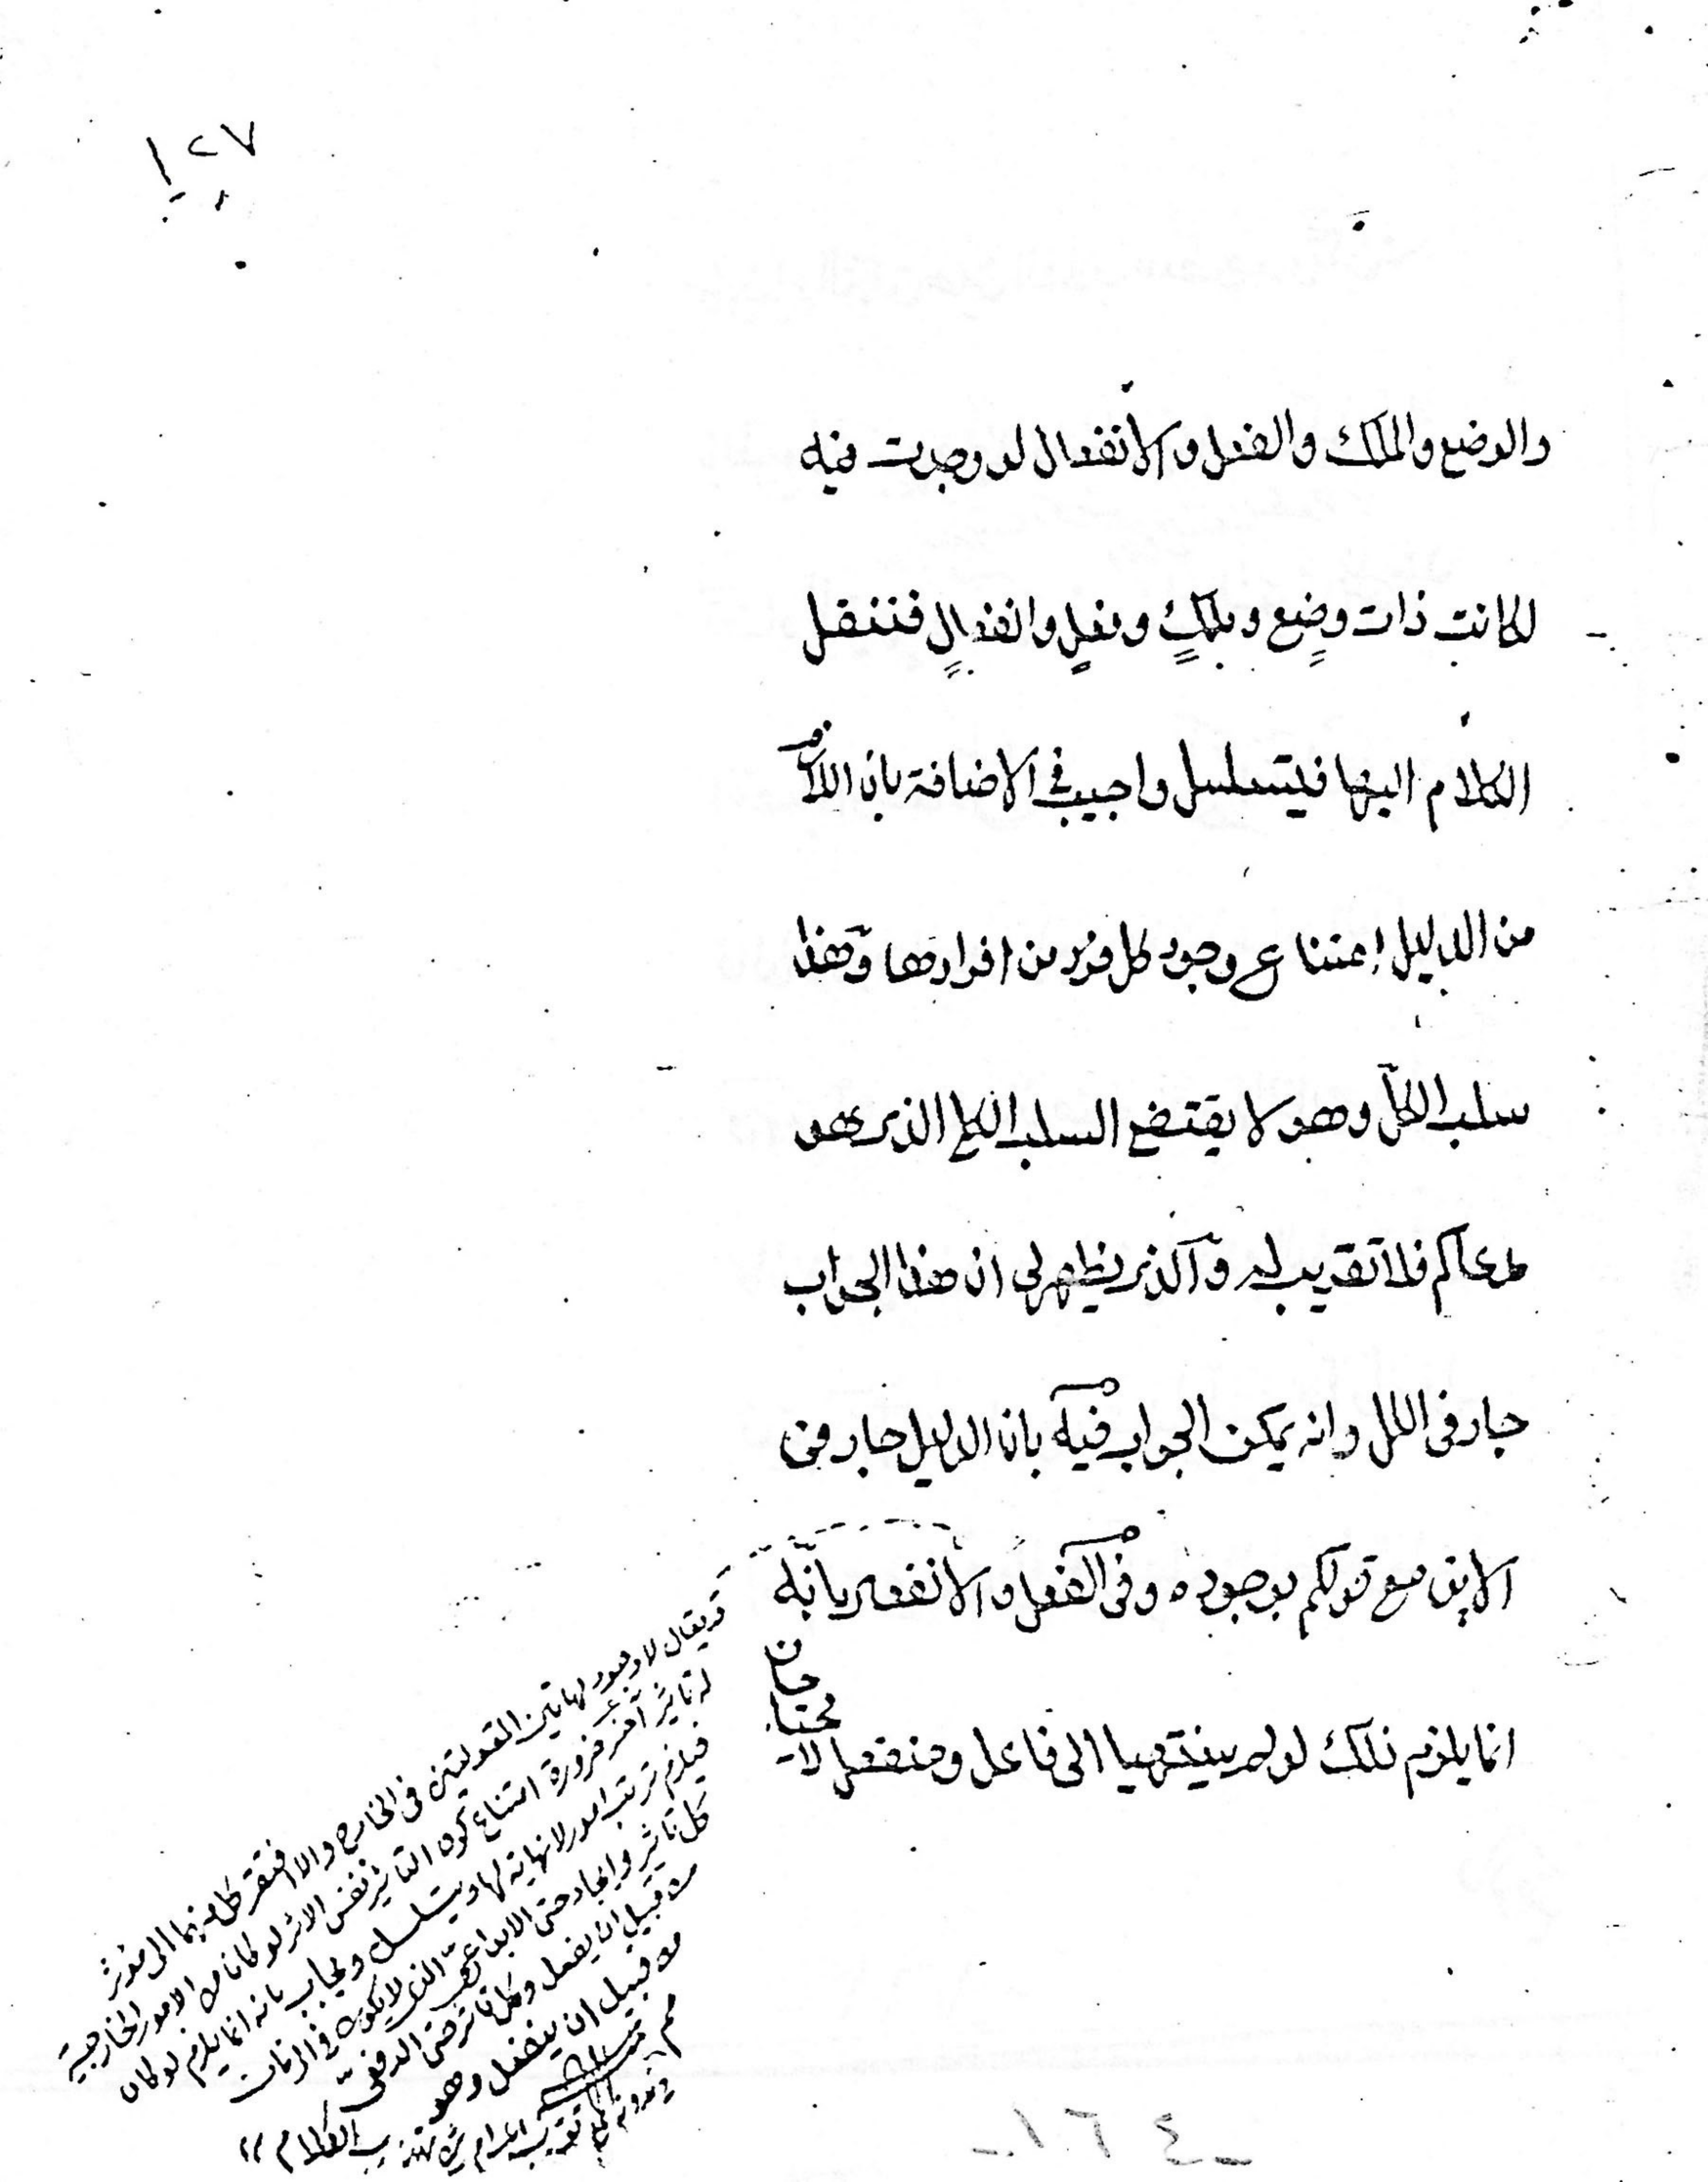 ١٢٧
والوضع والملك والفعل والانفعال لو وجدت فيه
لكانت ذات وضع وملك وفعل وانفعال فننقل
الكلام اليها فيتسلسل واجيب في الاضافة بان اللازم
من الدليل امتناع وجود كل فرد من افرادها وهذا
سلب الكل وهو لا يقتضى السلب الكلى الذى هو
مدعاكم فلا تقريب له والذى يظهر لى ان هذا الجواب
جار فى الكل وانه يمكن الجواب فيه بان الدليل جار فى
الاين مع قولكم بوجوده وفى الفعل والانفعال بانه
انما يلزم ذلك لو لم ينتهيا الى فاعل ومنفعل لا يحتاجان
قد يقال لا وجود لهاتين المقولتين فى الخارج والا افتقر كل منهما الى مؤثر
له تأثير آخر ضرورة امتناع كون التأثير نفس الاثر لو كانا من الامور الخارجية
فيلزم ترتب امور لا نهاية لها ويتسلسل ويجاب بانه انما يلزم لو كان
كل تأثير وايجاد حتى الابداعى الذى لا يكون فى الزمان
من قبيل ان يفعل وكل تأثر حتى الدفعى
من قبيل ان ينفعل وهو
تقريب المرام تهذيب الكلام
-١٦٤-